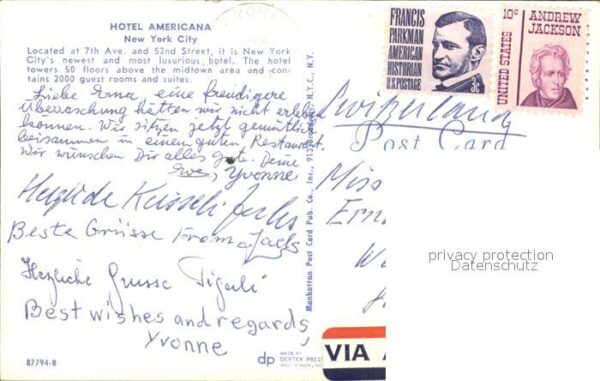 HOTEL AMERICANA
New York City
Located at 7th Ave. and 52nd Street, it is New York
City's newest and most luxurious hotel. The hotel
towers 50 floors above the midtown area and con-
tains 2000 guest rooms and suites.
Liebe Erna, eine freudigere
Überraschung hätten wir nicht erleben
können. Wir sitzen jetzt gemütlich
beisammen in einem guten Restaurant.
Wir wünschen Dir alles gute. Deine
Eve, Yvonne
Herzliche
Beste Grüsse From Jack
Herzliche Grusse
Best wishes and regards,
Yvonne
87794-B
dp
MADE BY
DEXTER PRESS
Manhattan Post Card Pub. Co., Inc., 913 Broadway, N.Y.C., N.Y.
FRANCIS
PARKMAN
AMERICAN
HISTORIAN
U.S. POSTAGE
3c
10c
ANDREW
JACKSON
UNITED STATES
Switzerland
Post Card
Miss
Ern
privacy protection
Datenschutz
VIA A